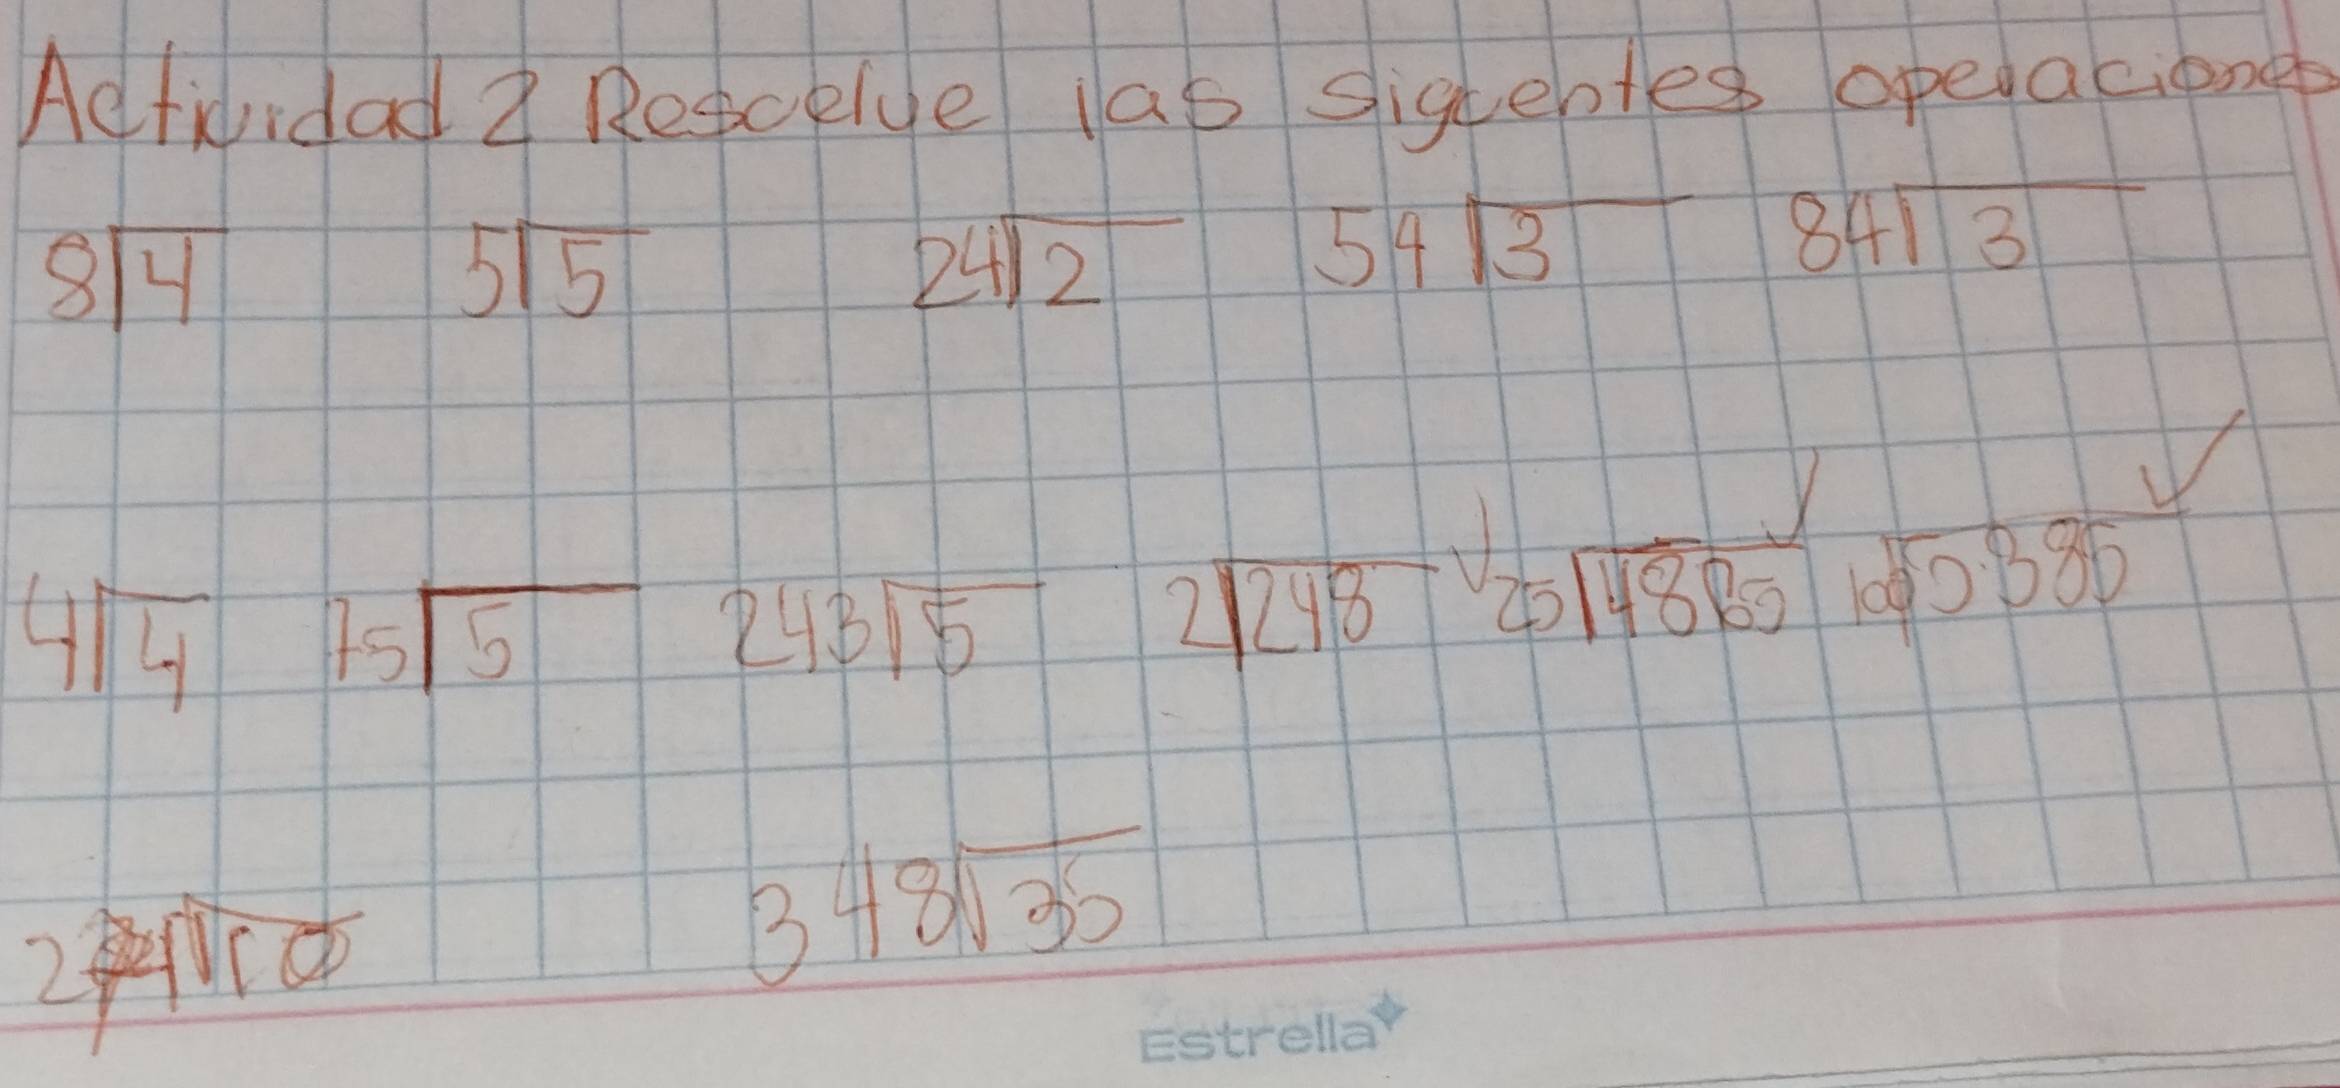 Actividad 2 Rescelve las sigcentes operaciones
8√4 5√5 24√2 54√3 84√3
4√4 75√5 243√5 2√248 ✓ 25√4865 ✓ ✓
348√35
Estrella